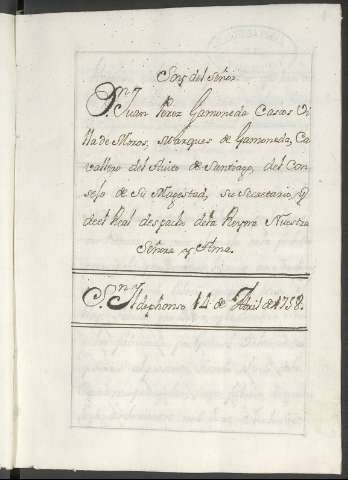 Son del Señor
Dn. Juan Perez Gamoneda Casas Vi
lla de Moros, Marques de Gamoneda, Ca
vallero del Avito de Santiago, del Con
sejo de Su Magestad, su Secretario, y
de el Real despacho dela Reyna Nuestra
Señora y Ama.
Sn. Ildephonso 14 de Abril de 1758.